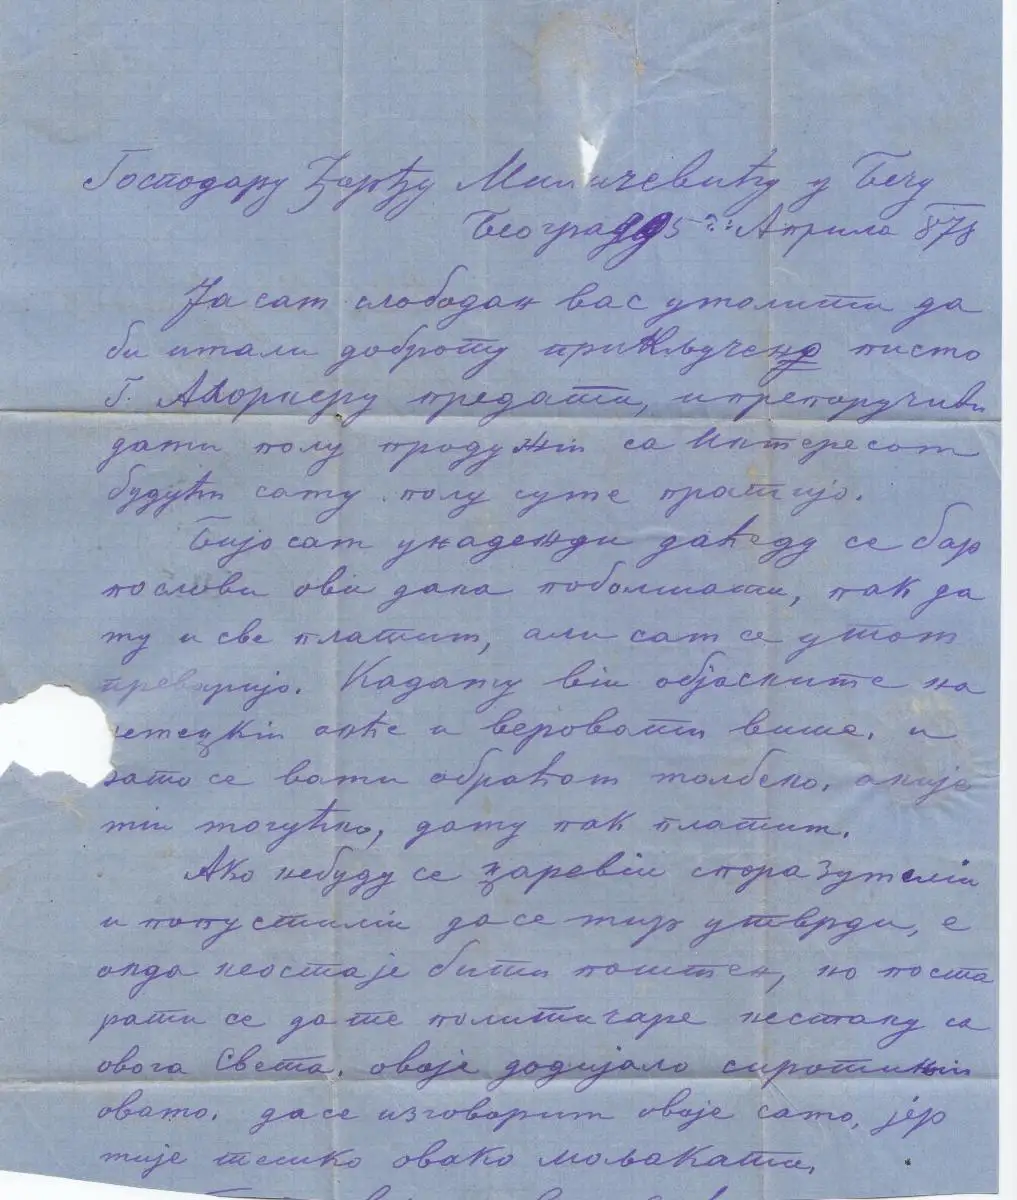 Господару Ђорђу Миличевићу у Бечу
Београд 5 Априла 878
Ја сам слободан вас умолити да
би имали доброту прикључено писмо
Г. предати, и препоручиви
дами полу продужи са Интересом
будући саму полу суме пратијо.
Бијо сам у надежди даћеду се бар
послови ови дана поболшати, пак да
му и све платим, али сам се утом
преваријо. Кадаму ви објасните на
немецки онће и веровати више, и
зато се вами обраћам молбено, акије
ми могућно, даму пак платим.
Ако небуду се цареви споразумели
и попустили да се мир утврди, е
онда неостаје бити поштен, но поста
рати се даме политичаре нестану са
овога Света, овоје додијало сиротињи
овамо. да се изговорим овоје само, јер
мије тешко овако мољакати,